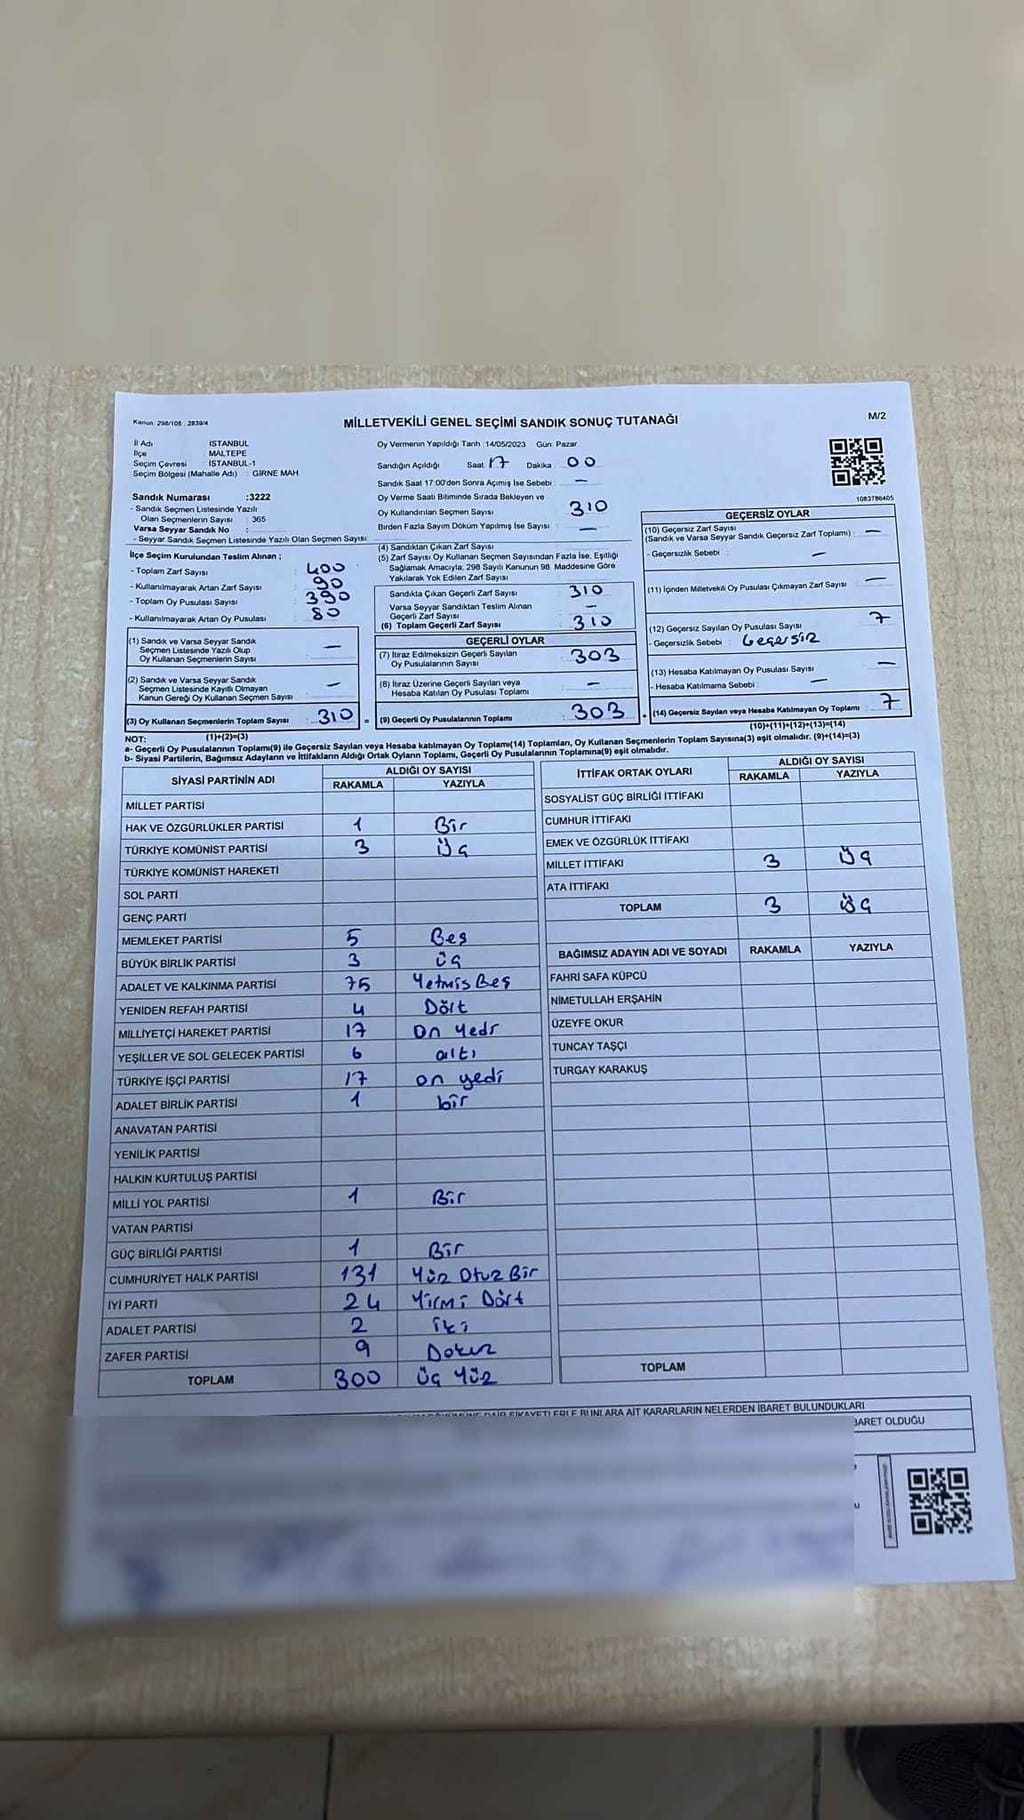 Kanun: 298/105 , 2839/4
MİLLETVEKİLİ GENEL SEÇİMİ SANDIK SONUÇ TUTANAĞI
M/2
İl Adı : İSTANBUL
İlçe : MALTEPE
Seçim Çevresi : İSTANBUL-1
Seçim Bölgesi (Mahalle Adı) : GİRNE MAH
Sandık Numarası :3222
- Sandık Seçmen Listesinde Yazılı
Olan Seçmenlerin Sayısı : 365
Varsa Seyyar Sandık No :
- Seyyar Sandık Seçmen Listesinde Yazılı Olan Seçmen Sayısı
Oy Vermenin Yapıldığı Tarih :14/05/2023 Gün: Pazar
Sandığın Açıldığı Saat: 17 Dakika : 00
Sandık Saat 17:00'den Sonra Açılmış İse Sebebi : —
Oy Verme Saati Bitiminde Sırada Bekleyen ve
Oy Kullandırılan Seçmen Sayısı 310
Birden Fazla Sayım Döküm Yapılmış İse Sayısı —
1083786405
İlçe Seçim Kurulundan Teslim Alınan ;
- Toplam Zarf Sayısı 400
- Kullanılmayarak Artan Zarf Sayısı 90
- Toplam Oy Pusulası Sayısı 390
- Kullanılmayarak Artan Oy Pusulası 80
(1) Sandık ve Varsa Seyyar Sandık
Seçmen Listesinde Yazılı Olup
Oy Kullanan Seçmenlerin Sayısı —
(2) Sandık ve Varsa Seyyar Sandık
Seçmen Listesinde Kayıtlı Olmayan
Kanun Gereği Oy Kullanan Seçmen Sayısı —
(3) Oy Kullanan Seçmenlerin Toplam Sayısı 310 =
(1)+(2)=(3)
(4) Sandıktan Çıkan Zarf Sayısı
(5) Zarf Sayısı Oy Kullanan Seçmen Sayısından Fazla İse, Eşitliği
Sağlamak Amacıyla, 298 Sayılı Kanunun 98. Maddesine Göre
Yakılarak Yok Edilen Zarf Sayısı
Sandıkta Çıkan Geçerli Zarf Sayısı 310
Varsa Seyyar Sandıktan Teslim Alınan
Geçerli Zarf Sayısı —
(6) Toplam Geçerli Zarf Sayısı 310
GEÇERLİ OYLAR
(7) İtiraz Edilmeksizin Geçerli Sayılan
Oy Pusulalarının Sayısı 303
(8) İtiraz Üzerine Geçerli Sayılan veya
Hesaba Katılan Oy Pusulası Toplamı —
(9) Geçerli Oy Pusulalarının Toplamı 303 +
GEÇERSİZ OYLAR
(10) Geçersiz Zarf Sayısı
(Sandık ve Varsa Seyyar Sandık Geçersiz Zarf Toplamı) : —
- Geçersizlik Sebebi : —
(11) İçinden Milletvekili Oy Pusulası Çıkmayan Zarf Sayısı —
(12) Geçersiz Sayılan Oy Pusulası Sayısı 7
- Geçersizlik Sebebi : Geçersiz
(13) Hesaba Katılmayan Oy Pusulası Sayısı —
- Hesaba Katılmama Sebebi : —
(14) Geçersiz Sayılan veya Hesaba Katılmayan Oy Toplamı : 7
(10)+(11)+(12)+(13)=(14)
NOT:
a- Geçerli Oy Pusulalarının Toplamı(9) ile Geçersiz Sayılan veya Hesaba katılmayan Oy Toplamı(14) Toplamları, Oy Kullanan Seçmenlerin Toplam Sayısına(3) eşit olmalıdır. (9)+(14)=(3)
b- Siyasi Partilerin, Bağımsız Adayların ve İttifakların Aldığı Ortak Oyların Toplamı, Geçerli Oy Pusulalarının Toplamına(9) eşit olmalıdır.
SİYASİ PARTİNİN ADI ALDIĞI OY SAYISI
RAKAMLA YAZIYLA
MİLLET PARTİSİ
HAK VE ÖZGÜRLÜKLER PARTİSİ 1 Bir
TÜRKİYE KOMÜNİST PARTİSİ 3 Üç
TÜRKİYE KOMÜNİST HAREKETİ
SOL PARTİ
GENÇ PARTİ
MEMLEKET PARTİSİ 5 Beş
BÜYÜK BİRLİK PARTİSİ 3 üç
ADALET VE KALKINMA PARTİSİ 75 Yetmis Beş
YENİDEN REFAH PARTİSİ 4 Dört
MİLLİYETÇİ HAREKET PARTİSİ 17 on Yedi
YEŞİLLER VE SOL GELECEK PARTİSİ 6 altı
TÜRKİYE İŞÇİ PARTİSİ 17 on yedi
ADALET BİRLİK PARTİSİ 1 bir
ANAVATAN PARTİSİ
YENİLİK PARTİSİ
HALKIN KURTULUŞ PARTİSİ
MİLLİ YOL PARTİSİ 1 Bir
VATAN PARTİSİ
GÜÇ BİRLİĞİ PARTİSİ 1 Bir
CUMHURİYET HALK PARTİSİ 131 Yüz Otuz Bir
İYİ PARTİ 24 Yirmi Dört
ADALET PARTİSİ 2 iki
ZAFER PARTİSİ 9 Dokuz
TOPLAM 300 Üç Yüz
İTTİFAK ORTAK OYLARI ALDIĞI OY SAYISI
RAKAMLA YAZIYLA
SOSYALİST GÜÇ BİRLİĞİ İTTİFAKI
CUMHUR İTTİFAKI
EMEK VE ÖZGÜRLÜK İTTİFAKI
MİLLET İTTİFAKI 3 Üç
ATA İTTİFAKI
TOPLAM 3 Üç
BAĞIMSIZ ADAYIN ADI VE SOYADI RAKAMLA YAZIYLA
FAHRİ SAFA KÜPCÜ
NİMETULLAH ERŞAHİN
ÜZEYFE OKUR
TUNCAY TAŞÇI
TURGAY KARAKUŞ
TOPLAM
DAİR ŞİKAYETLERLE BUNLARA AİT KARARLARIN NELERDEN İBARET BULUNDUKLARI
BARET OLDUĞU